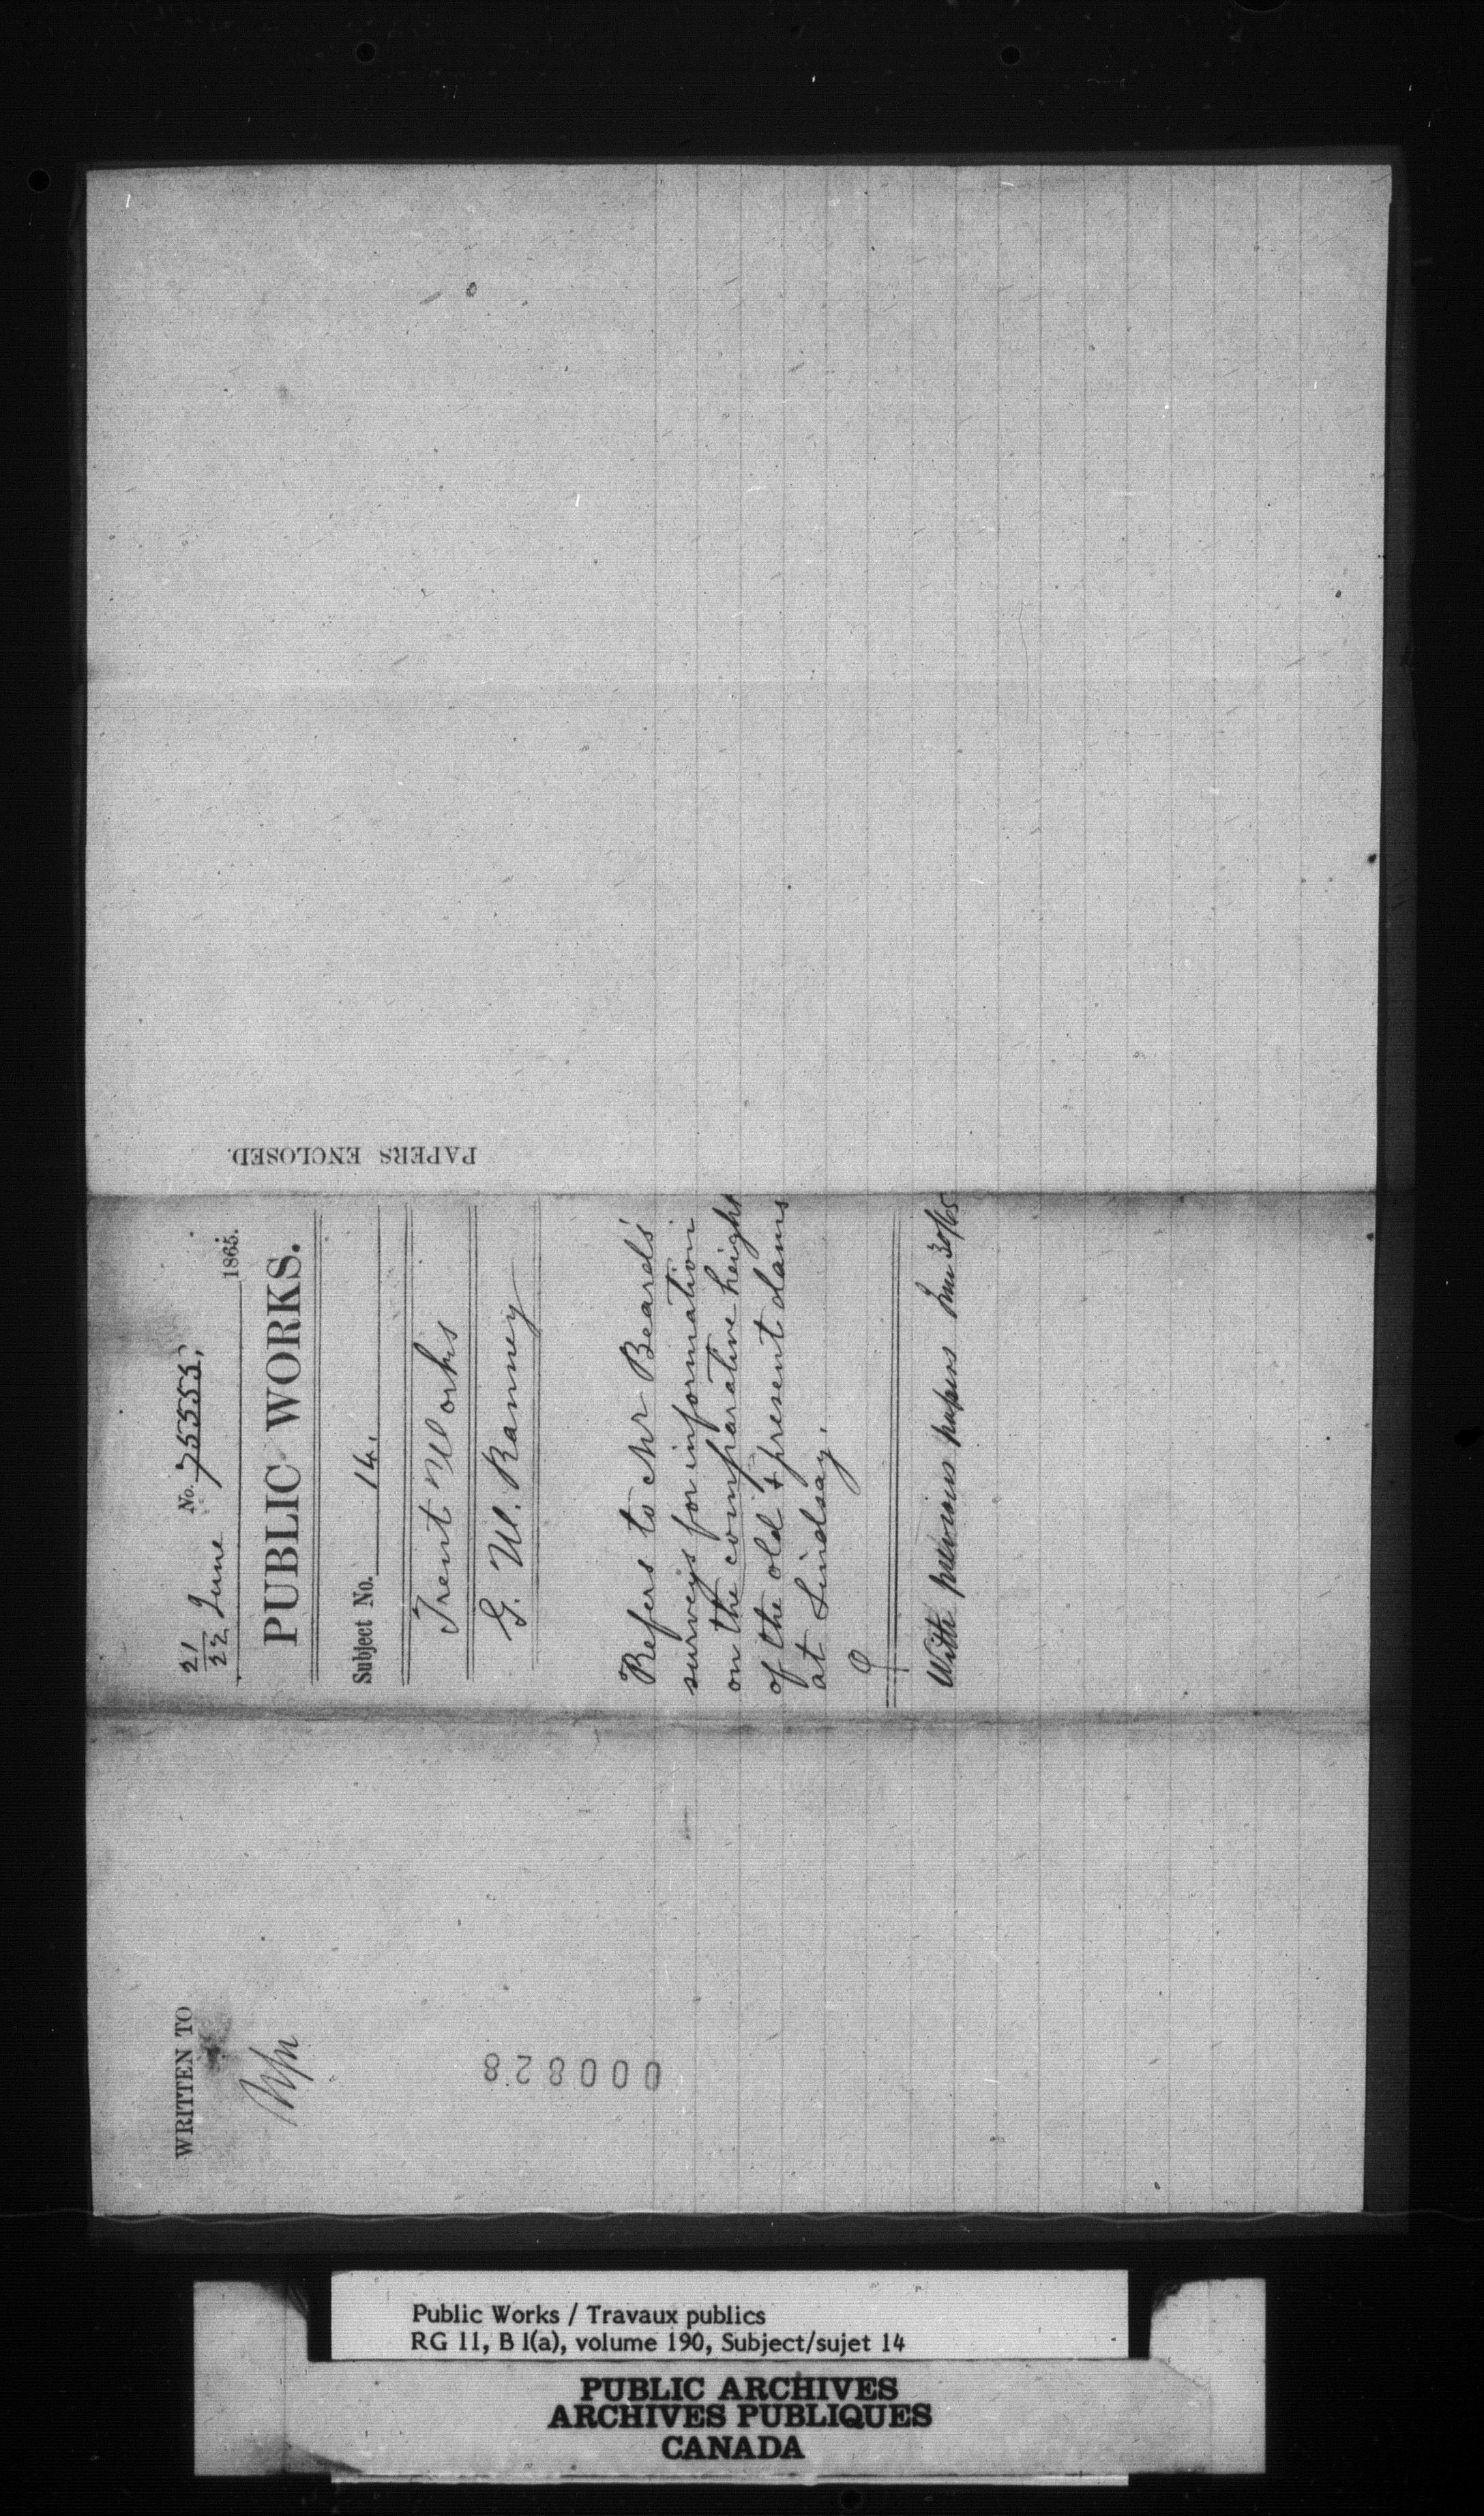 PAPERS ENCLOSED.
21/22 June No. 75555, 1865.
PUBLIC WORKS.
Subject No. 14.
Trent Works
G. W. Ranney
Refers to Mr Beard's
surveys for information
on the comparative height
of the old & present dams
at Lindsay.
With previous papers June 30/65
WRITTEN TO
000828
Public Works / Travaux publics
RG 11, B 1(a), volume 190, Subject/sujet 14
PUBLIC ARCHIVES
ARCHIVES PUBLIQUES
CANADA